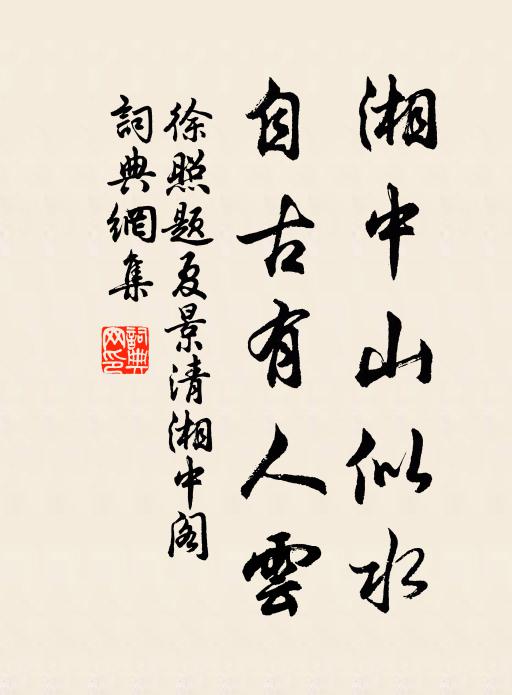 湘中山似水
自古有人雲
徐照题夏景清湘中阁
詞典網集
詞典
网印